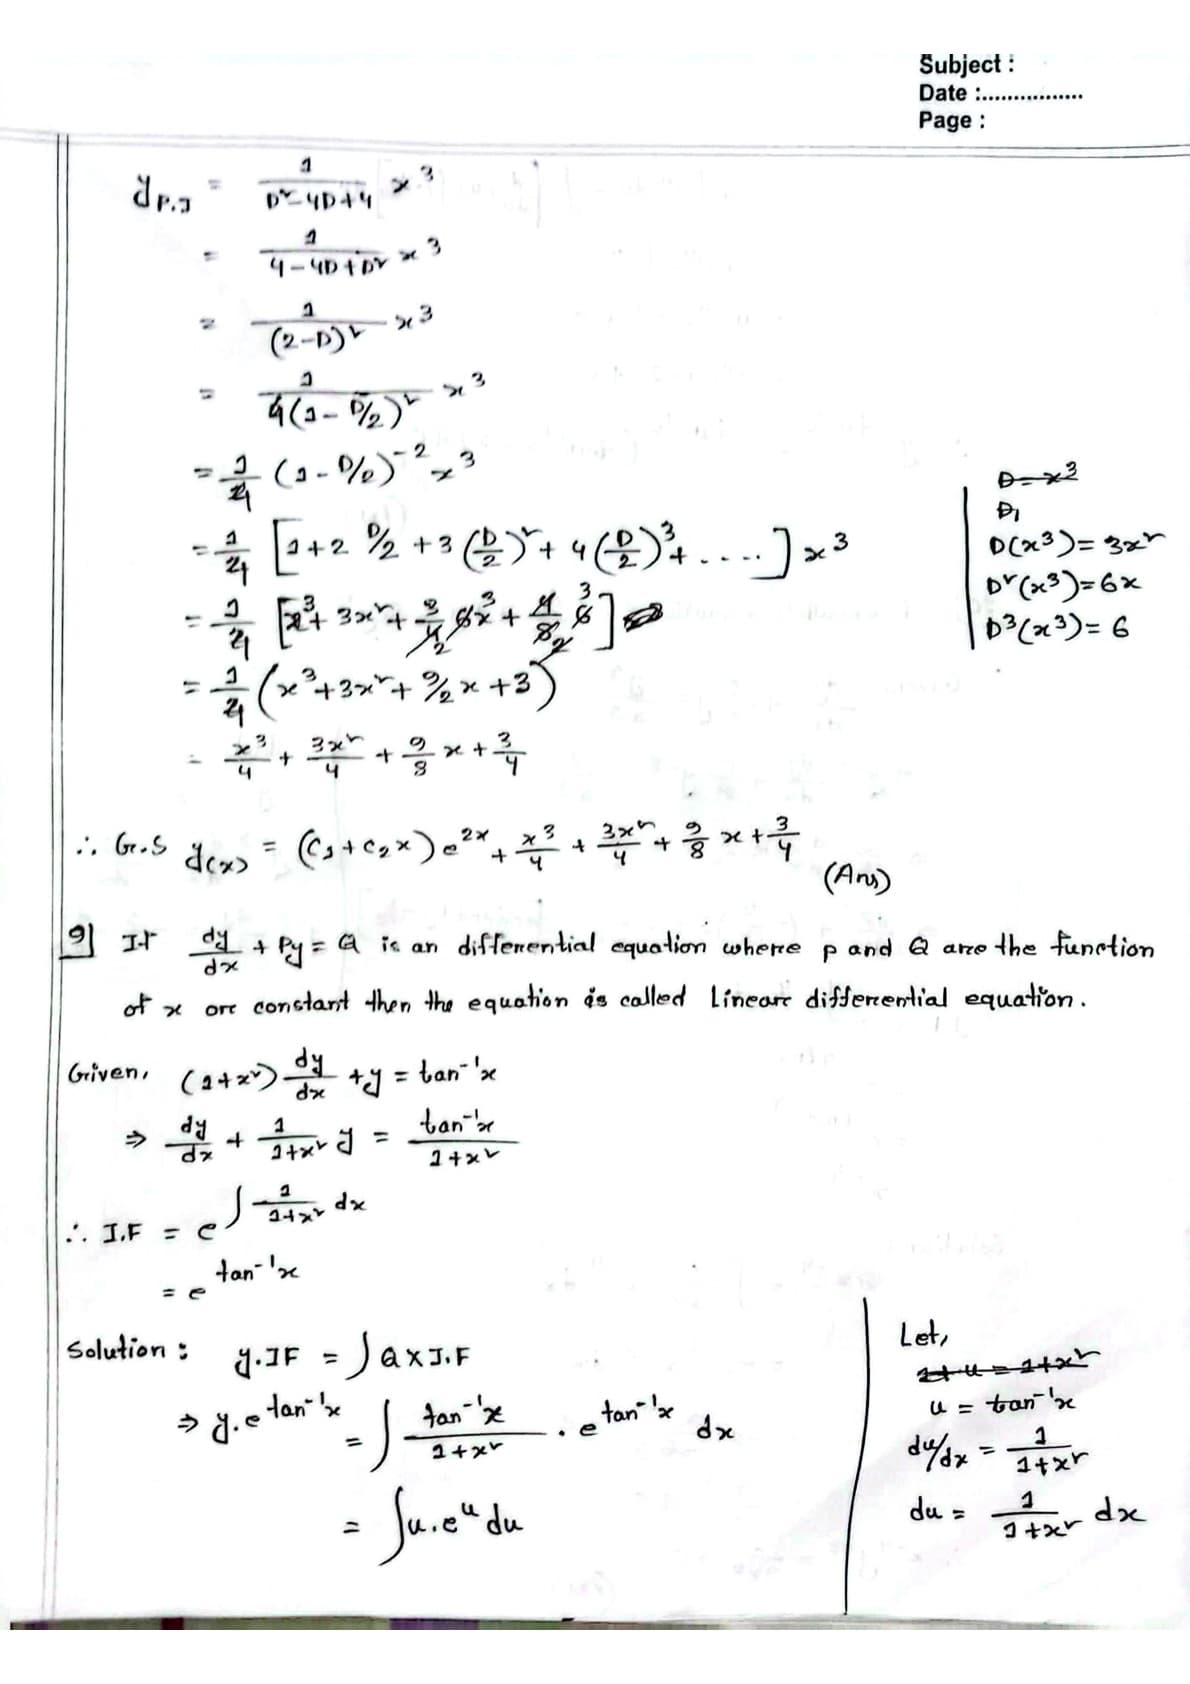 Subject :
Date :................
Page :
y_{P.I} = \frac{1}{D^2-4D+4} x^3
= \frac{1}{4-4D+D^2} x^3
= \frac{1}{(2-D)^2} x^3
= \frac{1}{4(1-D/2)^2} x^3
= \frac{1}{4} (1-D/2)^{-2} x^3
= \frac{1}{4} [1+2 D/2 +3 (\frac{D}{2})^2 + 4 (\frac{D}{2})^3 + ....] x^3
= \frac{1}{4} [x^3 + 3x^2 + \frac{3}{4} 6x + \frac{4}{8} 6]
= \frac{1}{4} (x^3+3x^2+ 9/2 x +3)
= \frac{x^3}{4} + \frac{3x^2}{4} + \frac{9}{8} x + \frac{3}{4}
D = x^3
D,
D(x^3) = 3x^2
D^2(x^3) = 6x
D^3(x^3) = 6
∴ G.S y(x) = (C_1+C_2x) e^{2x} + \frac{x^3}{4} + \frac{3x^2}{4} + \frac{9}{8} x + \frac{3}{4}
(Ans)
9] If \frac{dy}{dx} + Py = Q is an differential equation where p and Q are the function
of x or constant then the equation is called Linear differential equation.
Given, (1+x^2) \frac{dy}{dx} + y = tan^{-1}x
⇒ \frac{dy}{dx} + \frac{1}{1+x^2} y = \frac{tan^{-1}x}{1+x^2}
∴ I.F = e^{∫ \frac{1}{1+x^2} dx}
= e^{tan^{-1}x}
Solution : y.IF = ∫ Q X I.F
⇒ y.e^{tan^{-1}x} = ∫ \frac{tan^{-1}x}{1+x^2} . e^{tan^{-1}x} dx
= ∫u.e^u du
Let,
u = 1+x^2
u = tan^{-1}x
du/dx = \frac{1}{1+x^2}
du = \frac{1}{1+x^2} dx